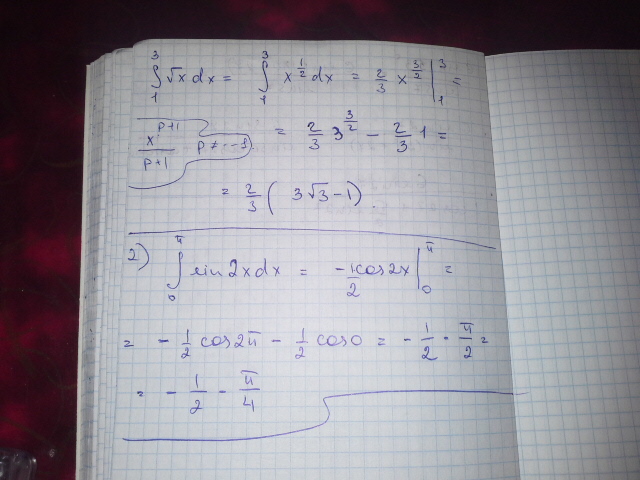 ∫₁³ √x dx = ∫₁³ x^(1/2) dx = 2/3 x^(3/2) |₁³ =
x^(p+1)/(p+1) p ≠ -1. = 2/3 3^(3/2) - 2/3 1 =
= 2/3 ( 3√3 - 1)
2) ∫₀^π sin 2x dx = - 1/2 cos 2x |₀^π =
= - 1/2 cos 2π - 1/2 cos 0 = - 1/2 - π/2 =
= - 1/2 - π/4